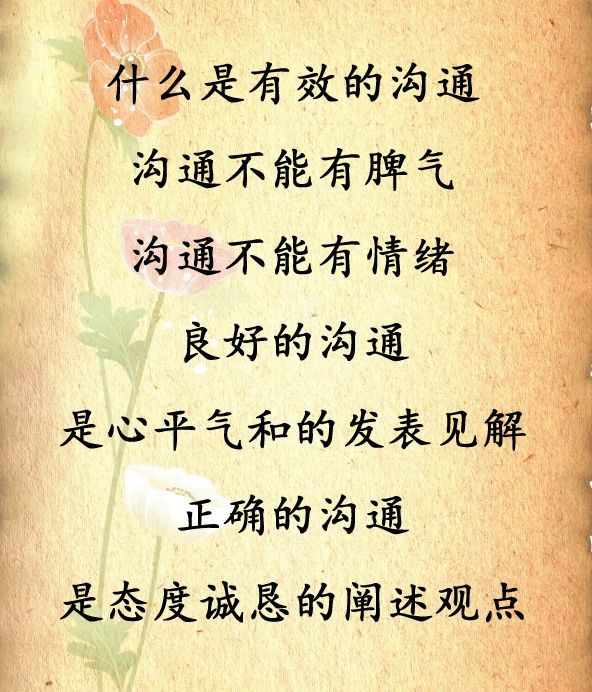 什么是有效的沟通
沟通不能有脾气
沟通不能有情绪
良好的沟通
是心平气和的发表见解
正确的沟通
是态度诚恳的阐述观点